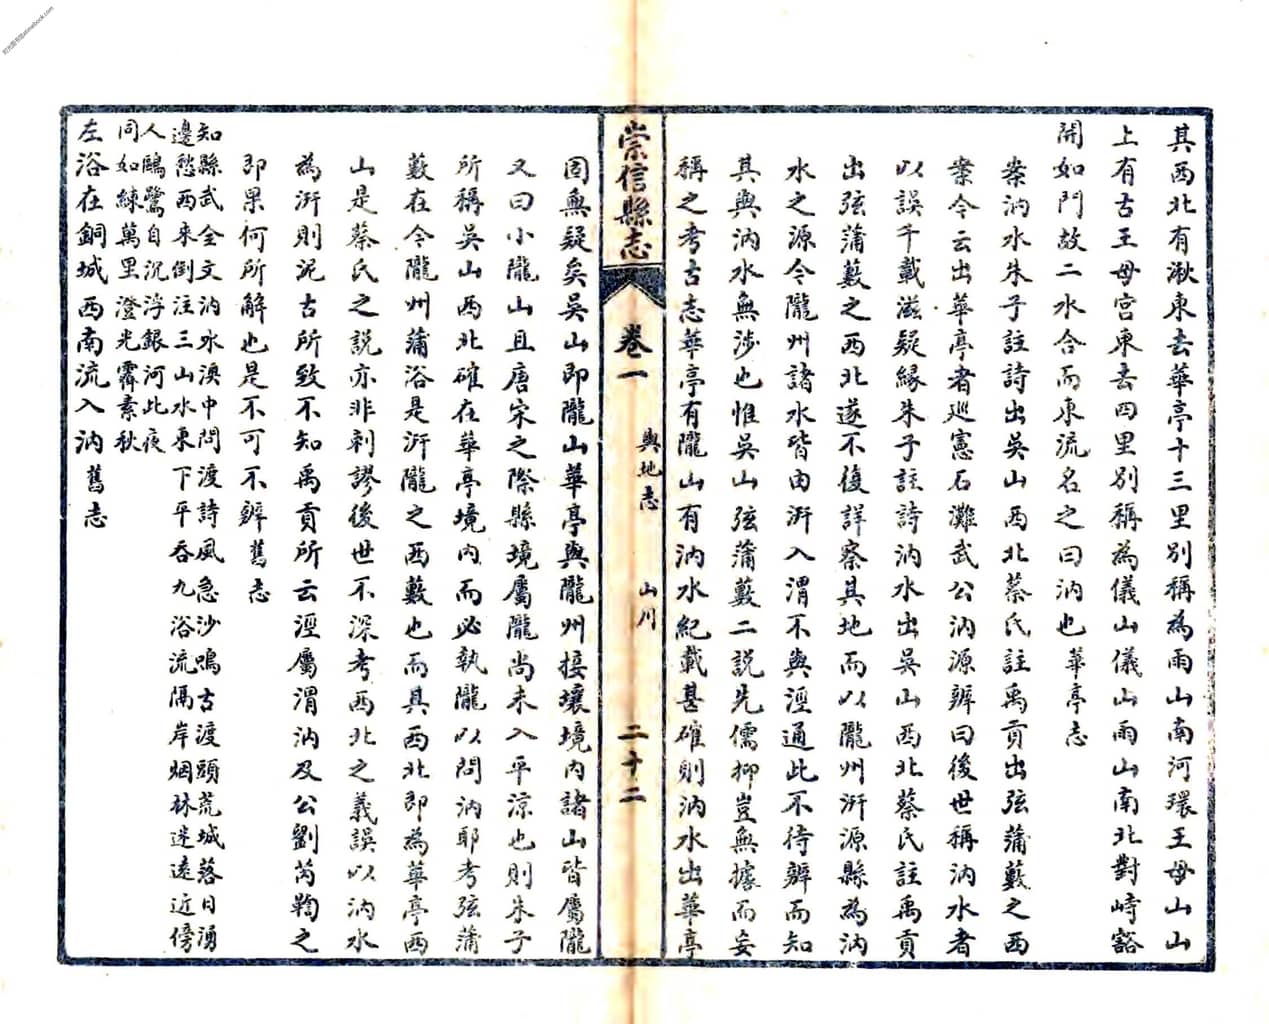 其西北有湫東去華亭十三里別稱為雨山南河環王母山山
上有古王母宮東去四里別稱為儀山儀山雨山南北對峙谽
開如門故二水合而東流名之曰汭也華亭志
案汭水朱子註詩出吳山西北蔡氏註禹貢出弦蒲藪之西
案今云出華亭者巡憲石灘武公汭源辨曰後世稱汭水者
以誤千載滋疑緣朱子註詩汭水出吳山西北蔡氏註禹貢
出弦蒲藪之西北遂不復詳察其地而以隴州汧源縣為汭
水之源今隴州諸水皆由汧入渭不與涇通此不待辨而知
其與汭水無涉也惟吳山弦蒲藪二說先儒抑豈無據而妄
稱之考古志華亭有隴山有汭水紀載甚確則汭水出華亭
崇信縣志
卷一
輿地志
山川
二十二
固無疑矣吳山即隴山華亭與隴州接壤境內諸山皆屬隴
又曰小隴山且唐宋之際縣境屬隴尚未入平涼也則朱子
所稱吳山西北確在華亭境內而必執隴以問汭耶考弦蒲
藪在今隴州蒲浴是汧隴之西藪也而其西北即為華亭西
山是蔡氏之說亦非剌謬後世不深考西北之義誤以汭水
為汧則泥古所致不知禹貢所云涇屬渭汭及公劉芮鞫之
即果何所解也是不可不辨舊志
知縣武全文汭水澳中問渡詩風急沙鳴古渡頭荒城落日湧
邊愁西來倒注三山水東下平吞九浴流隔岸烟林迷遠近傍
人鷗鷺自沉浮銀河此夜
同如練萬里澄光霽素秋
左浴在銅城西南流入汭舊志